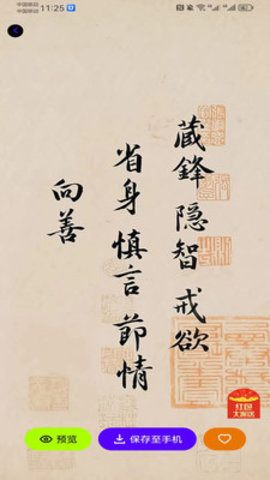 中国移动 11:25
中国移动
藏鋒隐智戒欲
省身慎言節情
向善
红包
大派送
预览
保存至手机